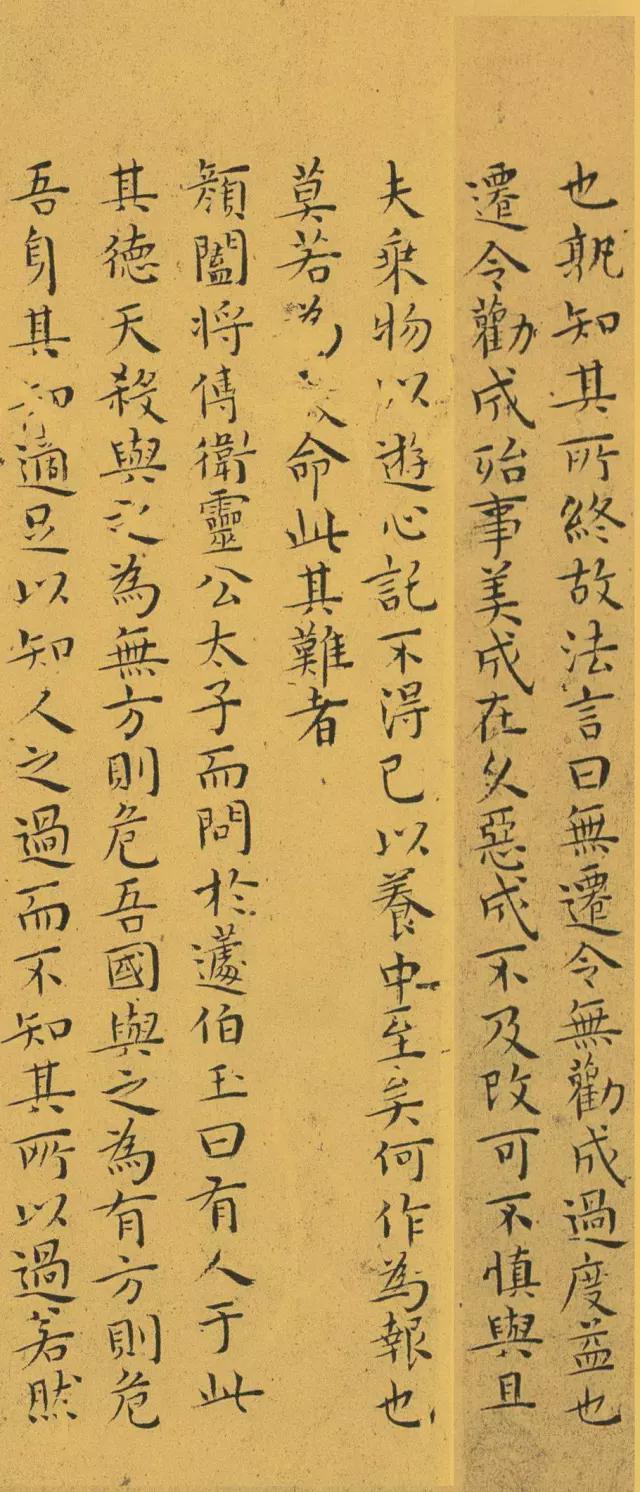 也孰知其所終故法言曰無遷令無勸成過度益也
遷令勸成殆事美成在久惡成不及改可不慎與且
夫乘物以遊心託不得已以養中至矣何作為報也
莫若為命此其難者
顏闔將傅衛靈公太子而問於蘧伯玉曰有人于此
其德天殺與之為無方則危吾國與之為有方則危
吾身其知適足以知人之過而不知其所以過若然